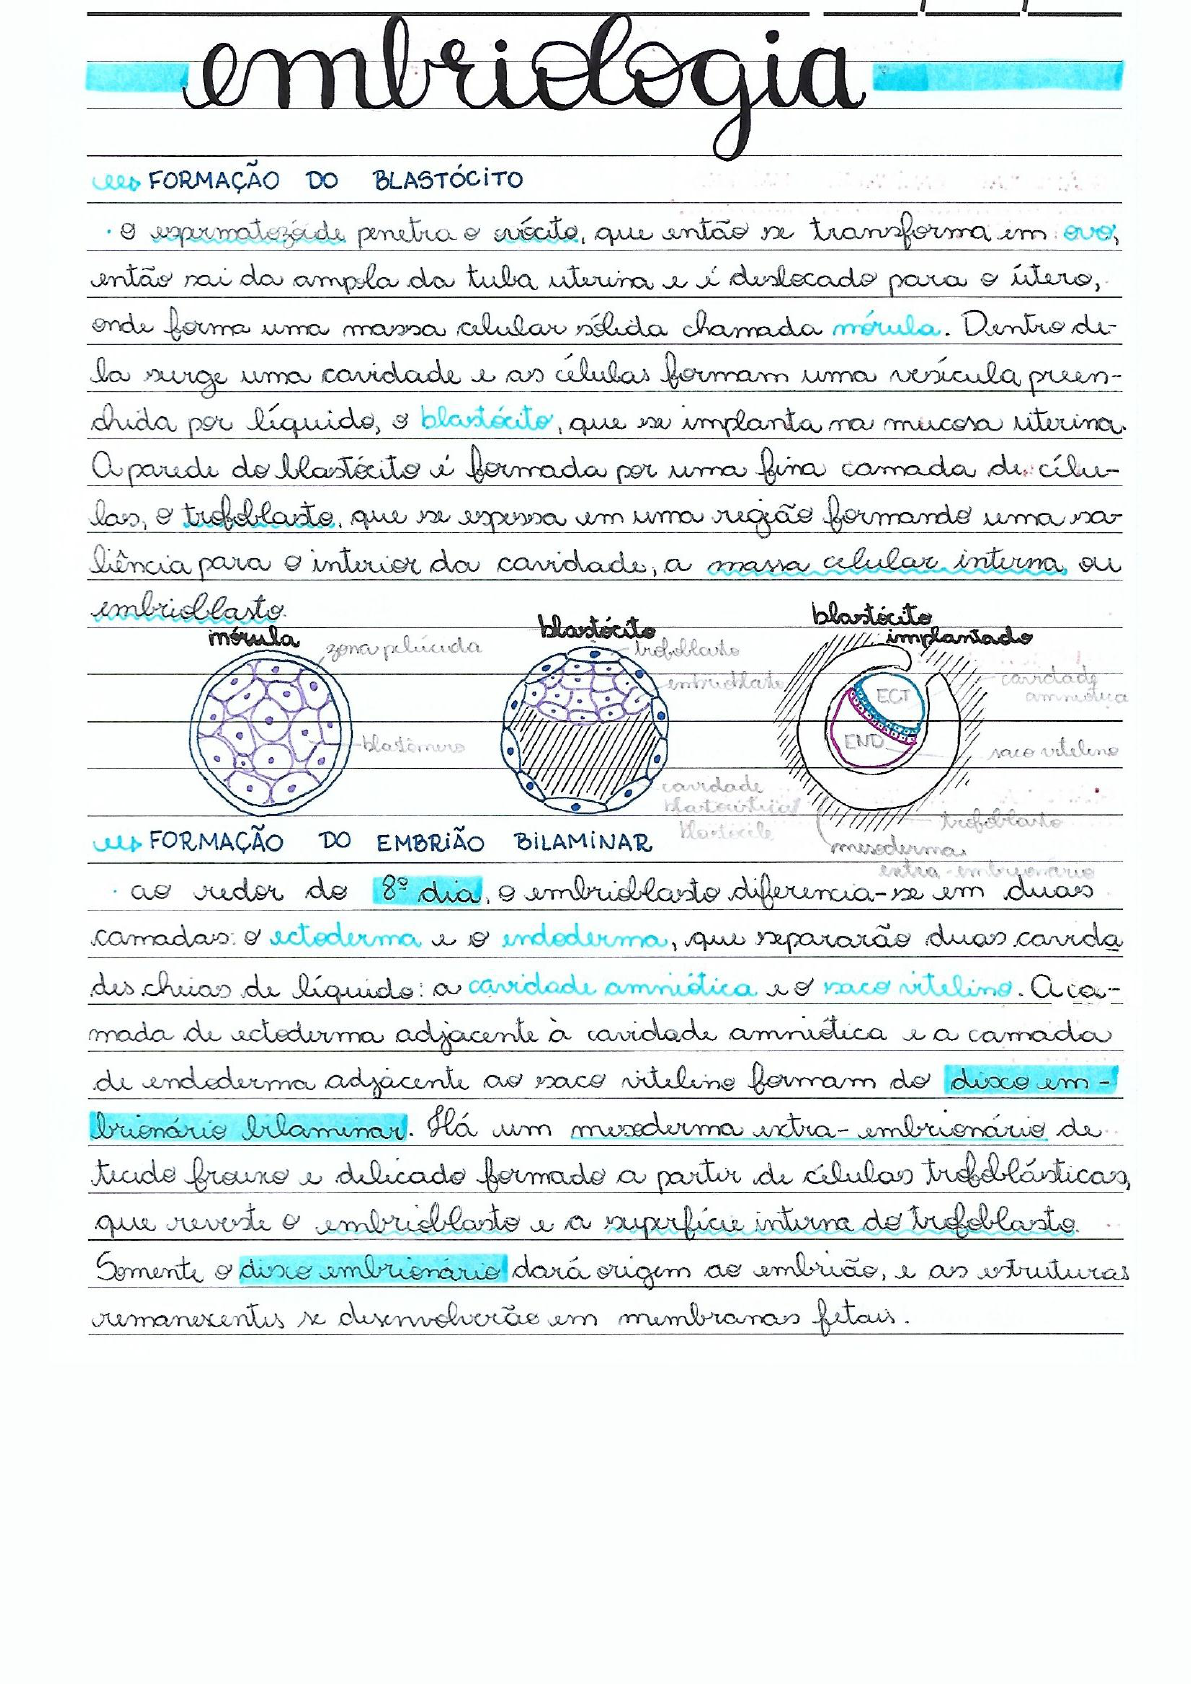 embriologia
FORMAÇÃO DO BLASTÓCITO
· O espermatozóide penetra o ovócito, que então se transforma em ovo,
então sai da ampola da tuba uterina e é deslocado para o útero,
onde forma uma massa celular sólida chamada mórula. Dentro de-
la surge uma cavidade e as células formam uma vesícula preen-
chida por líquido, o blastócito, que se implanta na mucosa uterina.
A parede do blastócito é formada por uma fina camada de célu-
las, o trofoblasto, que se espessa em uma região formando uma sa-
liência para o interior da cavidade, a massa celular interna ou
embrioblasto.
mórula
zona pelúcida
blastômero
blastócito
trofoblasto
embrioblasto
cavidade
blastocística/
blastocele
blastócito
implantado
cavidade
amniótica
ECT
END
saco vitelino
trofoblasto
mesoderma
extra-embrionário
FORMAÇÃO DO EMBRIÃO BILAMINAR
· ao redor do 8º dia, o embrioblasto diferencia-se em duas
camadas: o ectoderma e o endoderma, que separarão duas cavida
des cheias de líquido: a cavidade amniótica e o saco vitelino. A ca-
mada de ectoderma adjacente à cavidade amniótica e a camada
de endoderma adjacente ao saco vitelino formam do disco em-
brionário bilaminar. Há um mesoderma extra-embrionário de
tecido frouxo e delicado formado a partir de células trofoblásticas,
que reveste o embrioblasto e a superfície interna do trofoblasto.
Somente o disco embrionário dará origem ao embrião, e as estruturas
remanescentes se desenvolverão em membranas fetais.